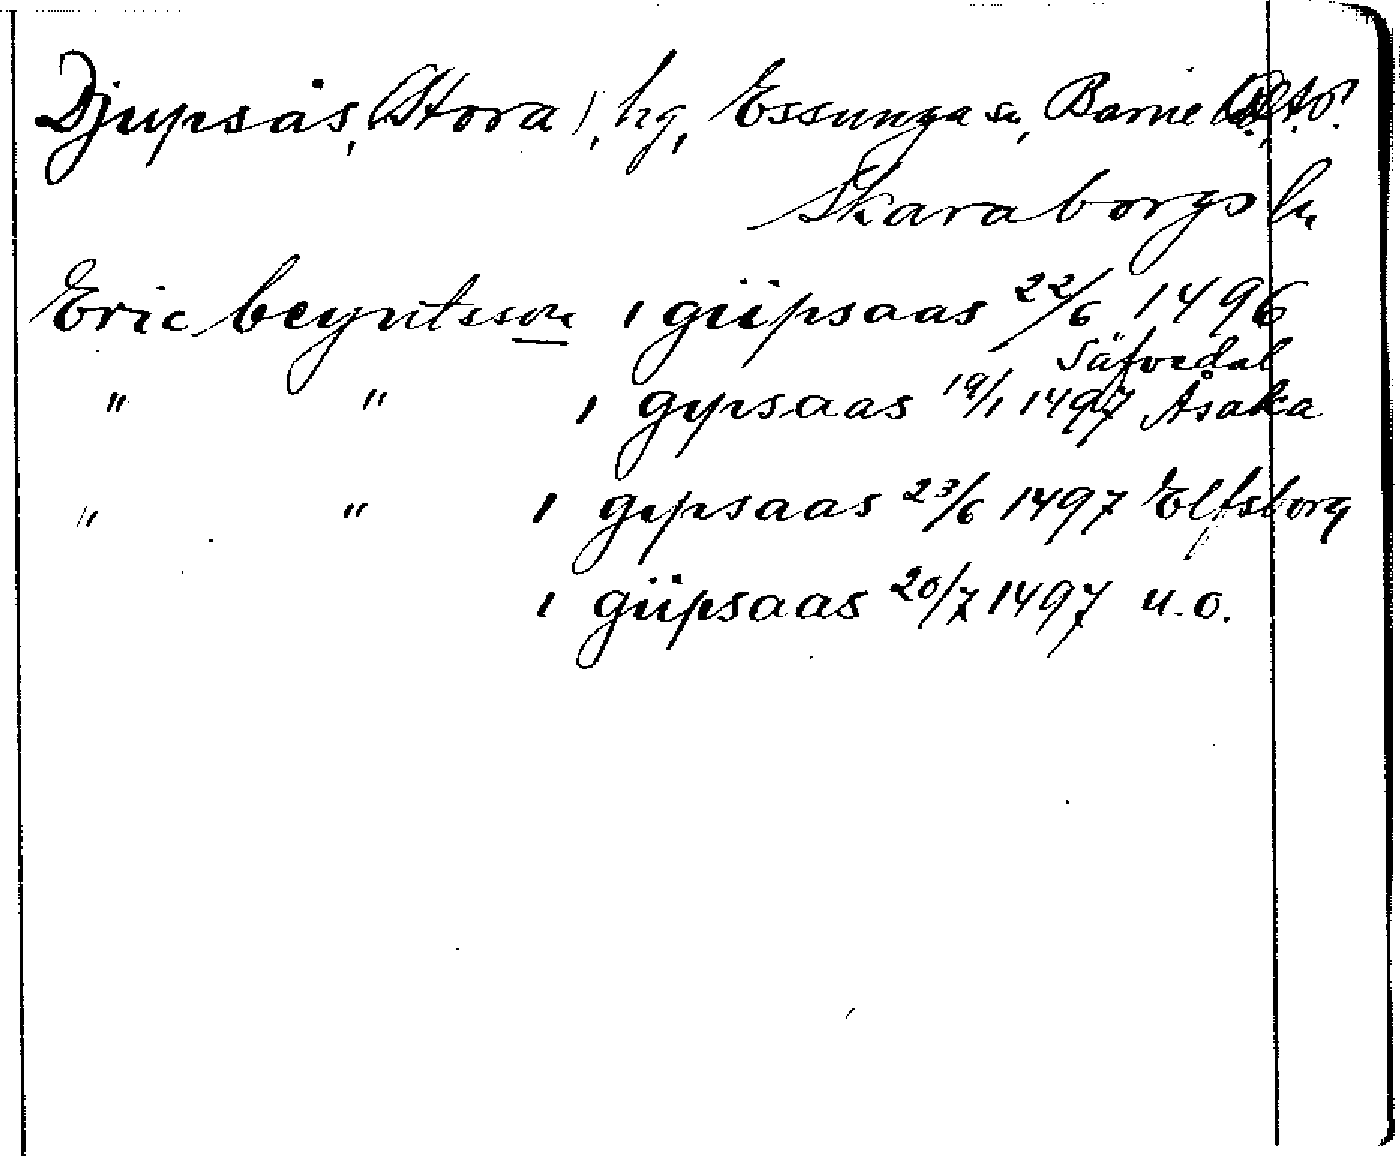 Djupsås, (Stora), hg, Essunga sn, Barne
Skaraborgs l.
Eric beyntsson i giipsaas 22/6 1496
Säfvedal
" " i gipsaas 19/1 1497 Åsaka
" " i gipsaas 23/6 1497 Elfsborg
i giipsaas 20/7 1497 u.o.